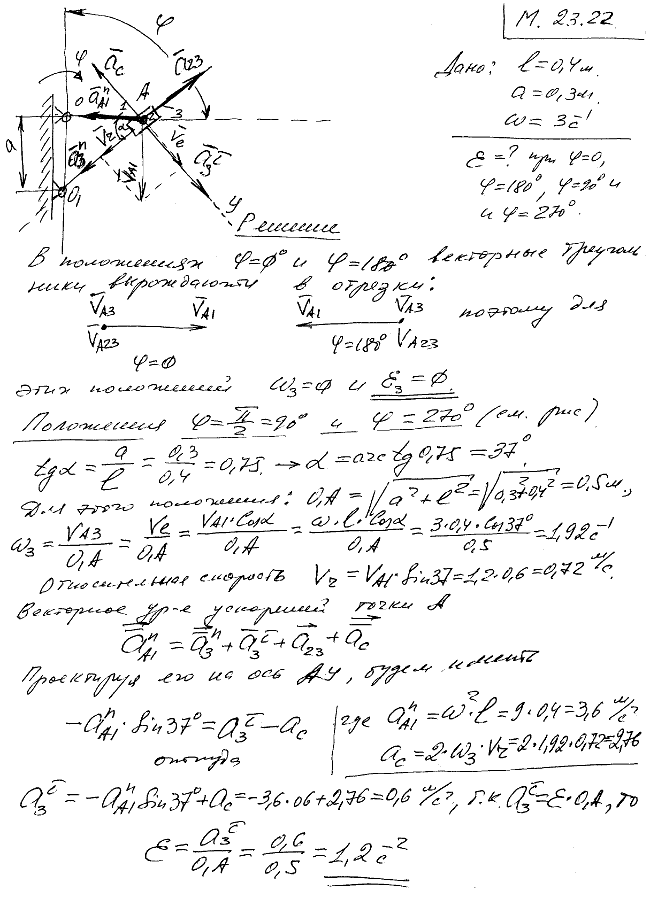 М. 23.22
Дано: l=0,4м.
a=0,3м.
ω = 3c⁻¹
ε=? при φ=0,
φ=180°, φ=90° и
и φ=270°.
φ
φ
ā_c
ā_23
A
ā^n_A1
0
1
3
V̄_r
α
V̄_e
a
ā^n_3
V̄_A1
ā^τ_3
O₁
y
Решение
В положениях φ=0° и φ=180° векторные треуголь
ники вырождаются в отрезки:
V̄_A3 V̄_A1 V̄_A1 V̄_A3 поэтому для
V̄_A23 φ=180° V̄_A23
φ=0
этих положений ω₃=0 и ε₃=0.
Положения φ=π/2=90° и φ=270° (см. рис)
tgα = a/l = 0,3/0,4 = 0,75. → α = arctg 0,75 = 37°
Для этого положения: O₁A = √(a²+l²) = √(0,3²+0,4²) = 0,5м.,
ω₃ = V_A3/O₁A = V_e/O₁A = V_A1·Cosα/O₁A = ω·l·Cosα/O₁A = 3·0,4·Cos37°/0,5 = 1,92c⁻¹
Относительная скорость V_r = V_A1·Sin37=1,2·0,6=0,72 м/с.
Векторное ур-е ускорений точки A
ā^n_A1 = ā^n_3 + ā^τ_3 + ā_23 + ā_c
Проектируя его на ось Ay, будем иметь
-a^n_A1·Sin37°=a^τ_3-a_c где a^n_A1=ω²·l=9·0,4=3,6 м/с²
откуда a_c=2·ω₃·V_r=2·1,92·0,72=2,76
a^τ_3=-a^n_A1 Sin37°+a_c=-3,6·06+2,76=0,6 м/с², т.к. a^τ_3=ε·O₁A, то
ε = a^τ_3/O₁A = 0,6/0,5 = 1,2c⁻²